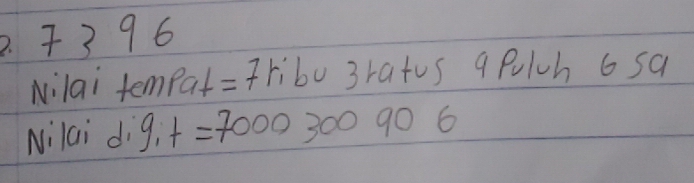 2. 7396
Nilai tempat = 7 ribu 3 ratus 9 Puluh 6 sa
Nilai digit = 7000 300 90 6